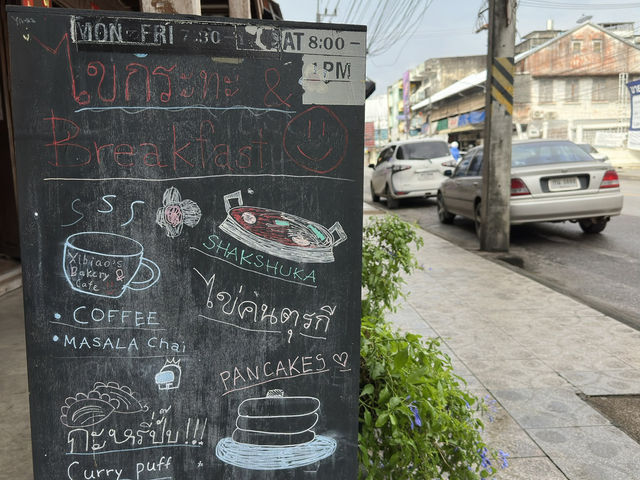 MON-FRI 7:30-
SAT 8:00-
1PM
ไข่กระทะ &
Breakfast
SSS
Xibiao's
Bakery &
Cafe
SHAKSHUKA
ไข่ค้นตุรกี
• COFFEE
• MASALA Chai
PANCAKES
กะหรี่ปั๊บ!!!
Curry puff